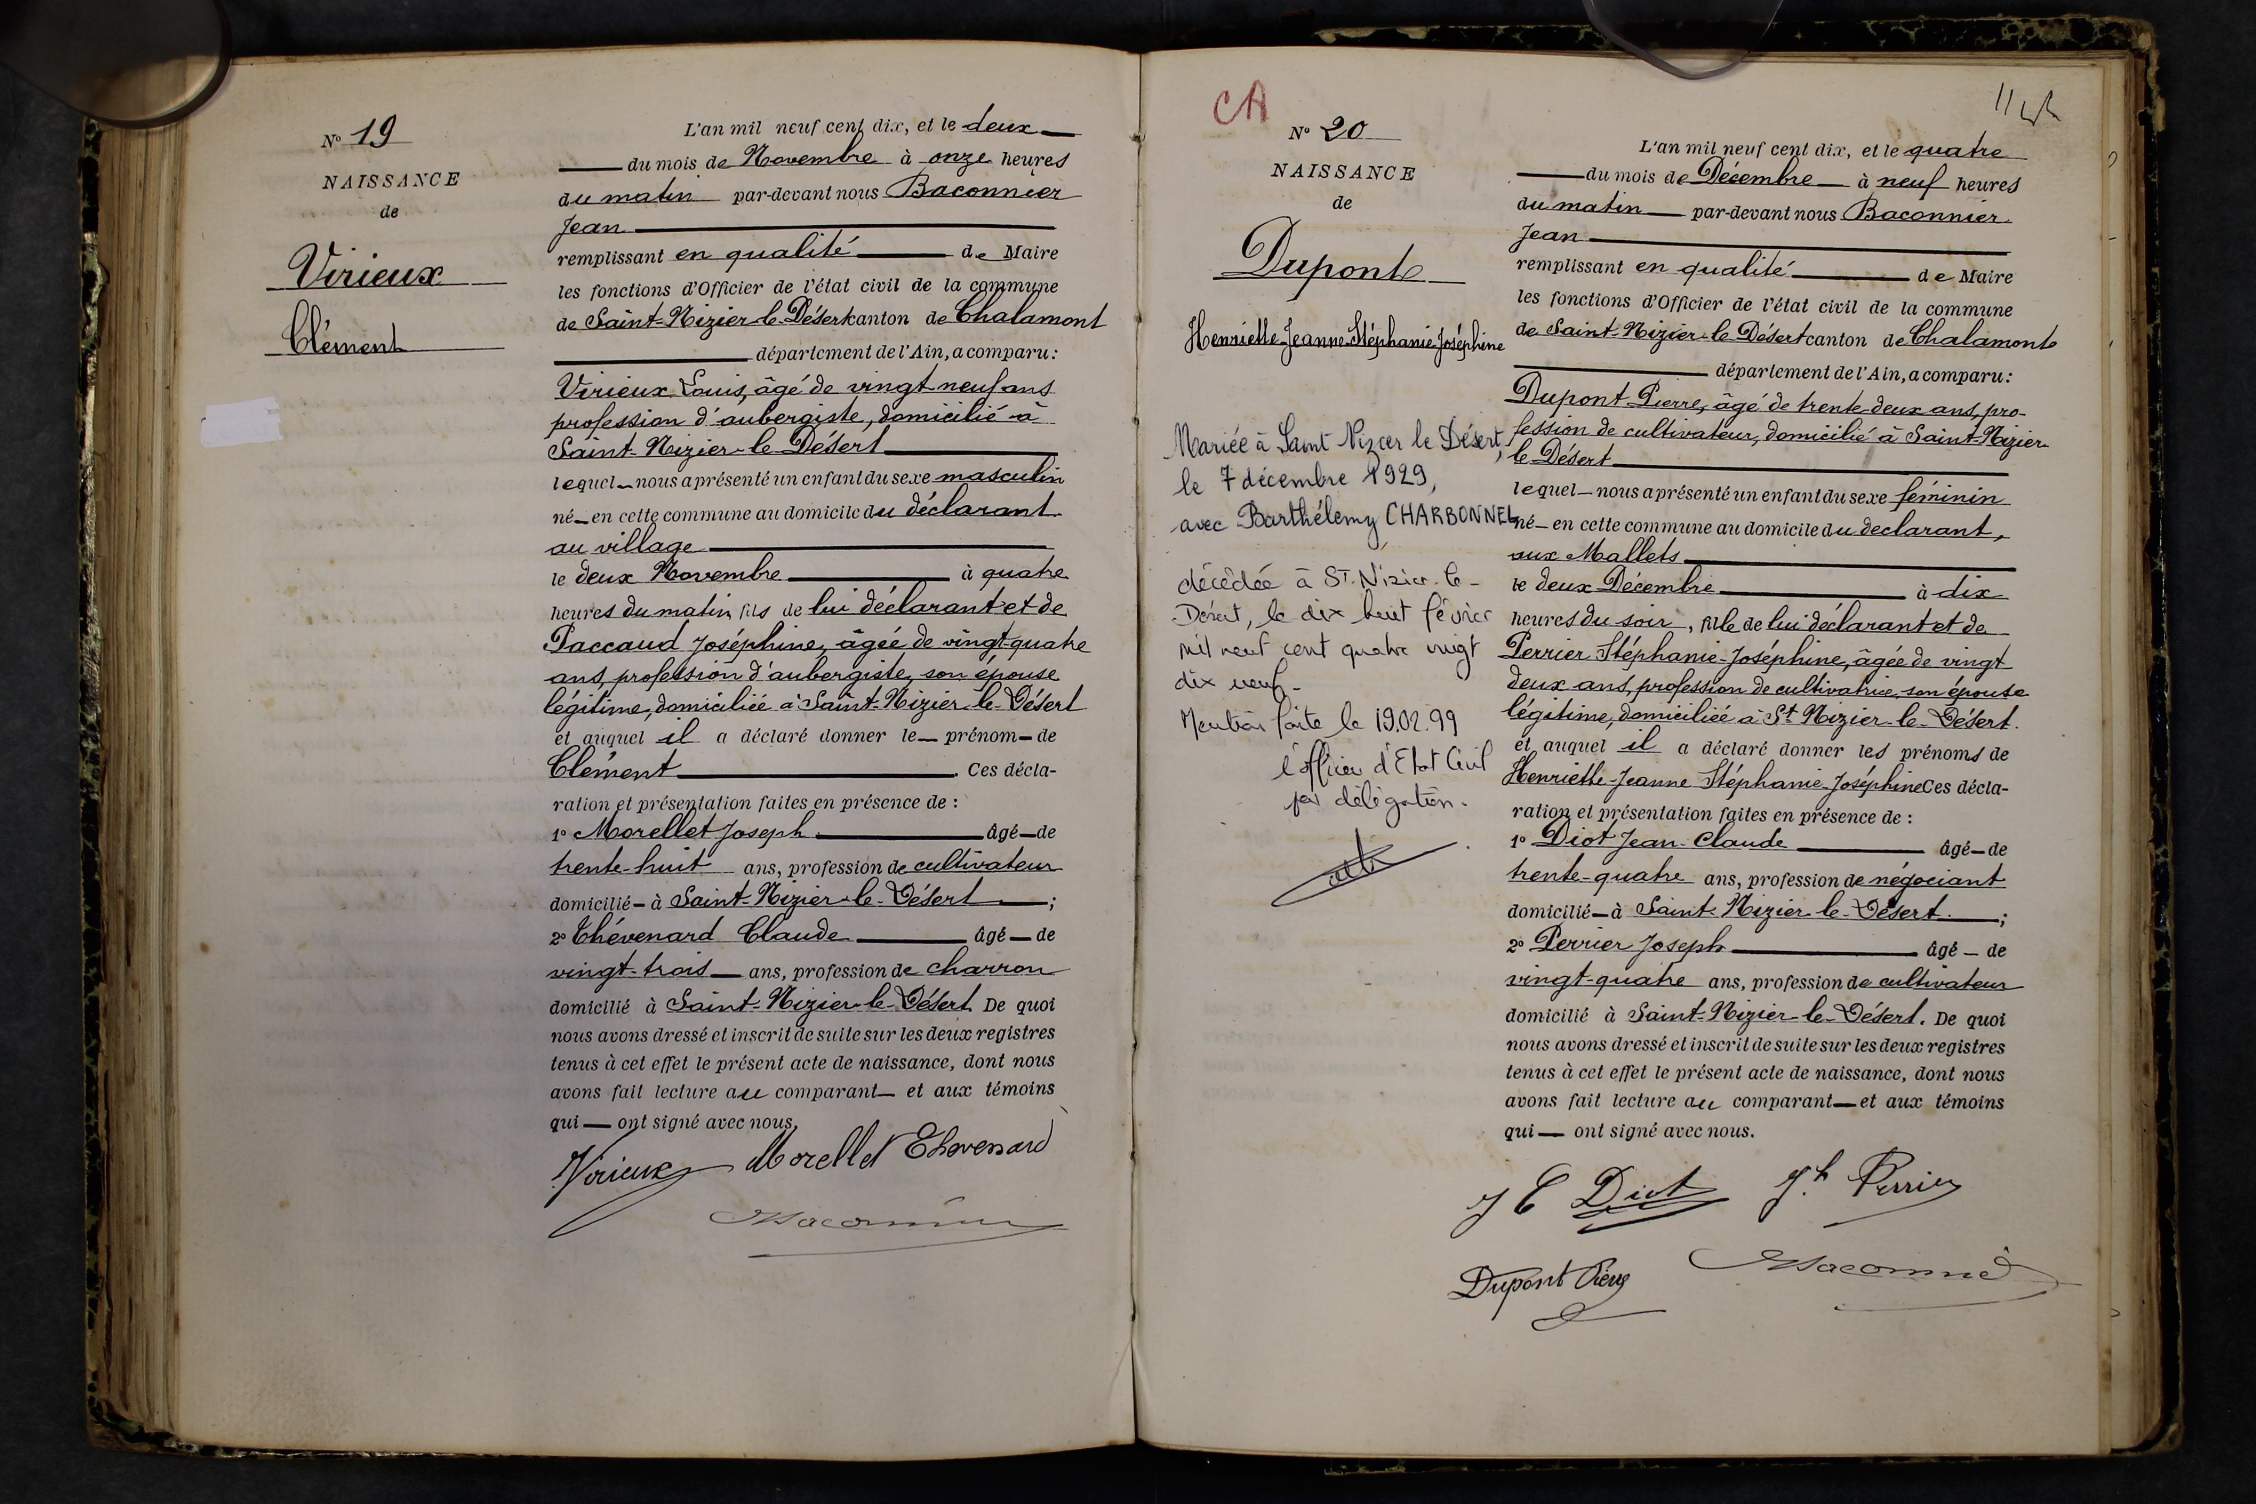 N° 19
NAISSANCE
de
Virieux
Clément
L'an mil neuf cent dix, et le deux
du mois de Novembre à onze heures
du matin par-devant nous Baconnier
Jean
remplissant en qualité de Maire
les fonctions d'Officier de l'état civil de la commune
de Saint-Nizier-le-Désert canton de Chalamont
département de l'Ain, a comparu :
Virieux Louis, âgé de vingt neuf ans
profession d'aubergiste, domicilié à
Saint-Nizier-le-Désert
lequel nous a présenté un enfant du sexe masculin
né en cette commune au domicile du déclarant
au village
le deux Novembre à quatre
heures du matin, fils de lui déclarant et de
Paccaud Joséphine, âgée de vingt-quatre
ans, profession d'aubergiste, son épouse
légitime, domiciliée à Saint-Nizier-le-Désert
et auquel il a déclaré donner le prénom de
Clément. Ces décla-
ration et présentation faites en présence de :
1° Morellet Joseph âgé de
trente-huit ans, profession de cultivateur
domicilié à Saint-Nizier-le-Désert ;
2° Thévenard Claude âgé de
vingt-trois ans, profession de charron
domicilié à Saint-Nizier-le-Désert. De quoi
nous avons dressé et inscrit de suite sur les deux registres
tenus à cet effet le présent acte de naissance, dont nous
avons fait lecture au comparant et aux témoins
qui ont signé avec nous.
Virieux Morellet Thevenard
Baconnier
CA
N° 20
NAISSANCE
de
Dupont
Henriette-Jeanne-Stéphanie-Joséphine
Mariée à Saint Nizier le Désert,
le 7 décembre 1929,
avec Barthélemy CHARBONNEL
décédée à ST. Nizier-le-
Désert, le dix huit février
mil neuf cent quatre vingt
dix neuf-
Mention faite le 19.02.99
l'officier d'Etat Civil
par délégation.
L'an mil neuf cent dix, et le quatre
du mois de Décembre à neuf heures
du matin par-devant nous Baconnier
Jean
remplissant en qualité de Maire
les fonctions d'Officier de l'état civil de la commune
de Saint-Nizier-le-Désert canton de Chalamont
département de l'Ain, a comparu :
Dupont Pierre, âgé de trente-deux ans, pro-
fession de cultivateur, domicilié à Saint-Nizier
le Désert
lequel nous a présenté un enfant du sexe féminin
né en cette commune au domicile du declarant,
aux Mallets
le deux Décembre à dix
heures du soir, fille de lui déclarant et de
Perrier Stéphanie-Joséphine, âgée de vingt
deux ans, profession de cultivatrice, son épouse
légitime, domiciliée à St Nizier-le-Désert.
et auquel il a déclaré donner les prénoms de
Henriette-Jeanne Stéphanie-Joséphine Ces décla-
ration et présentation faites en présence de :
1° Diot Jean-Claude âgé de
trente-quatre ans, profession de négociant
domicilié à Saint-Nizier-le-Désert. ;
2° Perrier Joseph âgé de
vingt-quatre ans, profession de cultivateur
domicilié à Saint-Nizier-le-Désert. De quoi
nous avons dressé et inscrit de suite sur les deux registres
tenus à cet effet le présent acte de naissance, dont nous
avons fait lecture au comparant et aux témoins
qui ont signé avec nous.
J C Diot Jh Perrier
Dupont Pierre Baconnier